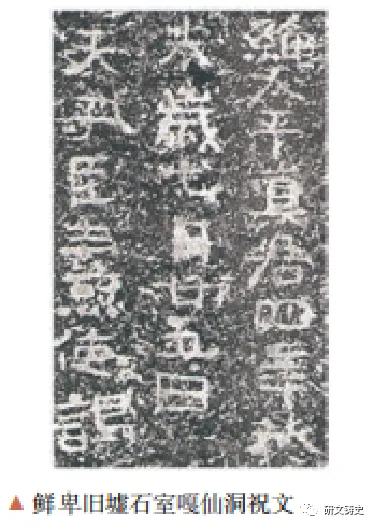 維太平真君四年癸
未歲七月廿五日
天子臣燾使謁
▲ 鲜卑旧墟石室嘎仙洞祝文
研文铸史